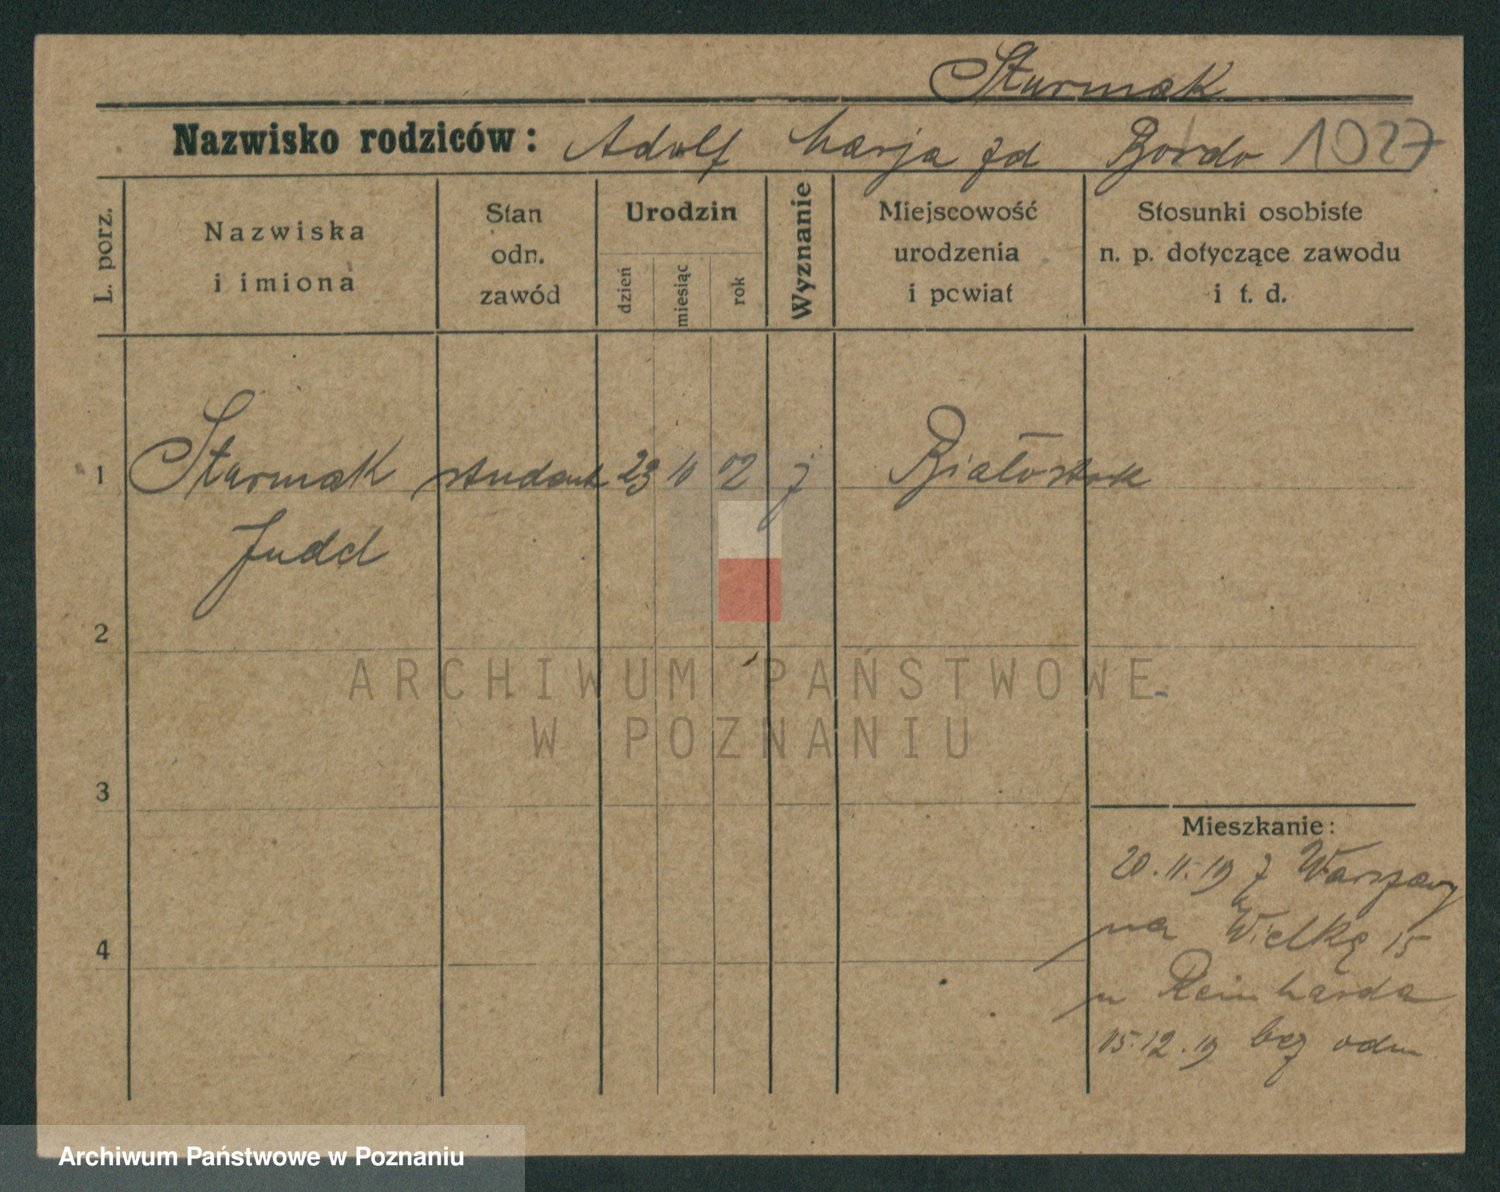 Sturmak
Nazwisko rodziców: Adolf Marja zd Bordo 1027
L. porz.
Nazwiska
i imiona
Stan
odn.
zawód
Urodzin
dzień
miesiąc
rok
Wyznanie
Miejscowość
urodzenia
i powiat
Stosunki osobiste
n. p. dotyczące zawodu
i t. d.
1 Sturmak student 23 10 02 j Białostok
Judel
2
ARCHIWUM PAŃSTWOWE
W POZNANIU
3
Mieszkanie:
20.11.19 z Warszawy
na Wielką 15
4
u Reinharda
15.12.19 bez odm
Archiwum Państwowe w Poznaniu